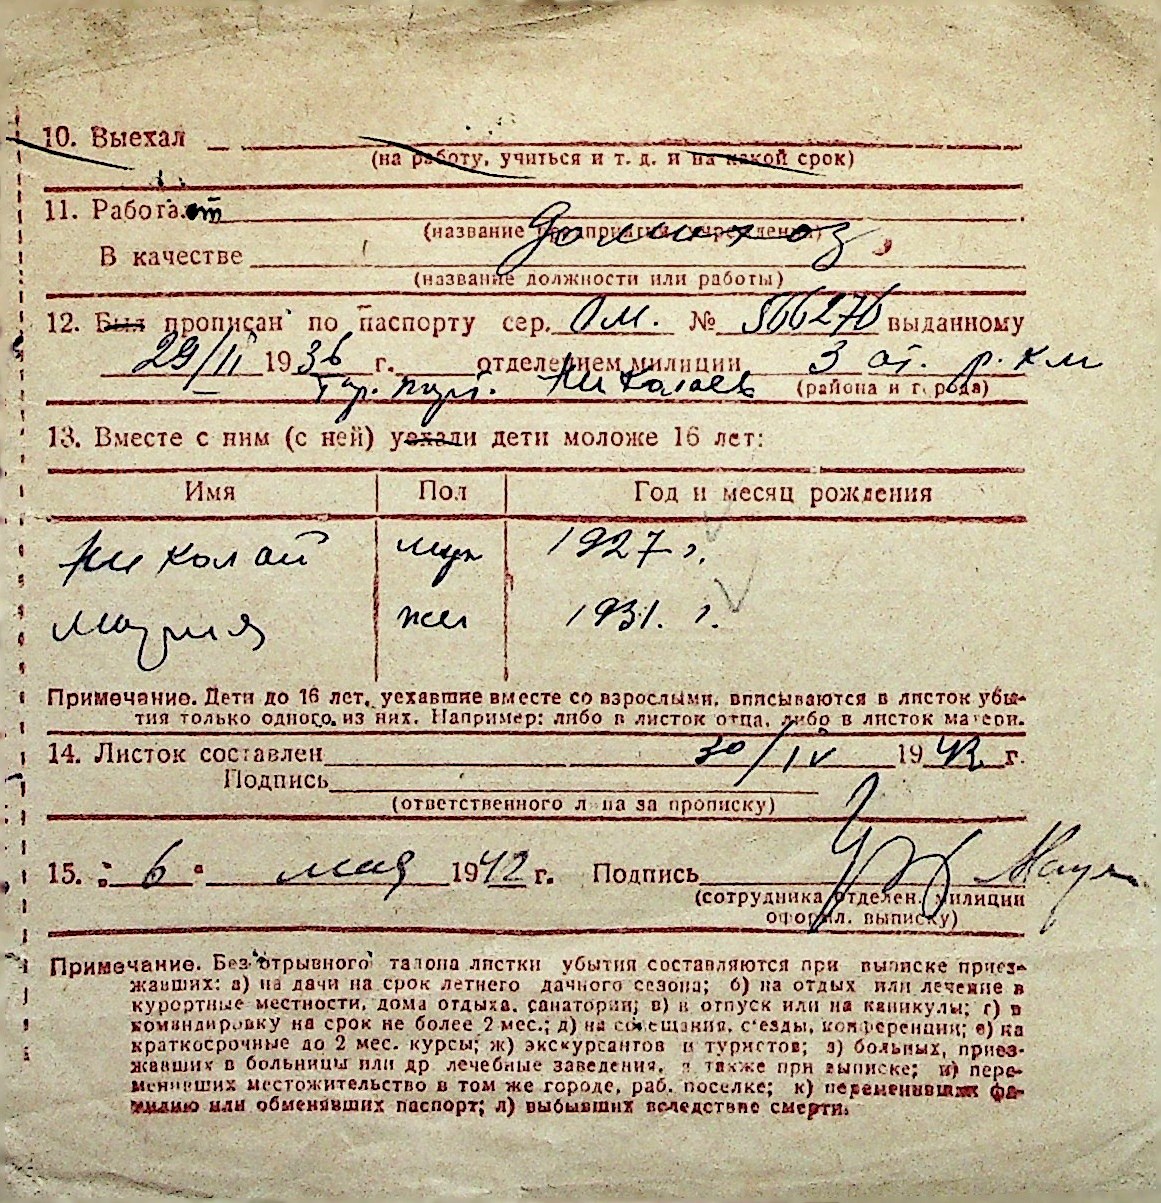 10. Выехал
(на работу, учиться и т. д. и на какой срок)
11. Работает
(название предприятия учреждения)
домохоз,
В качестве
(название должности или работы)
12. Был прописан по паспорту сер. ОМ. № 566276 выданному
29/II 1936 г. отделением милиции 3 от. р. к м
(района и города)
Николаев
13. Вместе с ним (с ней) уехали дети моложе 16 лет:
Имя Пол Год и месяц рождения
Николай муж 1927 г.
Мария жен 1931. г.
Примечание. Дети до 16 лет, уехавшие вместе со взрослыми, вписываются в листок убы-
тия только одного из них. Например: либо в листок отца, либо в листок матери.
14. Листок составлен 30/IV 1942 г.
Подпись
(ответственного лица за прописку)
15. „ 6 " мая 1942 г. Подпись
(сотрудника отделен. милиции
оформл. выписку)
Примечание. Без отрывного талона листки убытия составляются при выписке приез-
жавших: а) на дачи на срок летнего дачного сезона; б) на отдых или лечение в
курортные местности, дома отдыха, санатории; в) в отпуск или на каникулы; г) в
командировку на срок не более 2 мес.; д) на совещания, с'езды, конференции; е) на
краткосрочные до 2 мес. курсы; ж) экскурсантов и туристов; з) больных, приез-
жавших в больницы или др. лечебные заведения, а также при выписке; и) пере-
менивших местожительство в том же городе, раб. поселке; к) переменивших фа-
милию или обменявших паспорт; л) выбывших вследствие смерти.